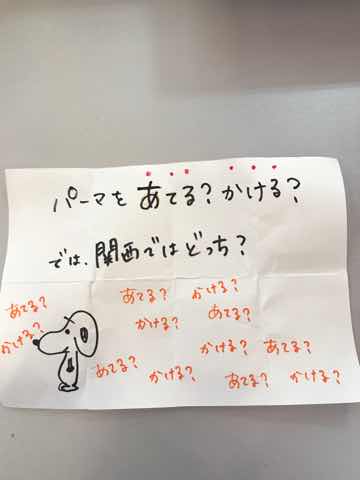 パーマを あてる？かける？
では、関西ではどっち？
あてる？ あてる？ かける？
かける？ かける？ あてる？
かける？ あてる？
あてる？ かける？ あてる？ かける？